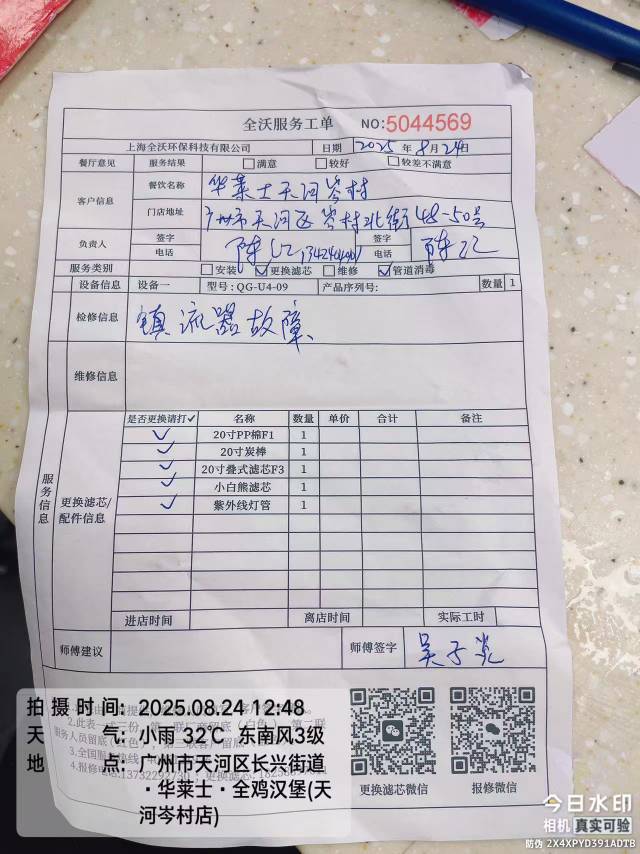 全沃服务工单 NO:5044569
上海全沃环保科技有限公司 日期 2025 年 8 月 24 日
餐厅意见 服务结果 □满意 □较好 □较差不满意
客户信息 餐饮名称 华莱士天河岑村
门店地址 广州市天河区岑村北街48-50号
负责人 签字 电话 签字 电话
服务类别 □安装 ☑更换滤芯 □维修 ☑管道消毒
设备信息 设备一 型号:QG-U4-09 产品序列号: 数量 1
检修信息 镇流器故障
维修信息
服务信息
更换滤芯/配件信息
是否更换请打✓ 名称 数量 单价 合计 备注
✓ 20寸PP棉F1 1
✓ 20寸炭棒 1
✓ 20寸叠式滤芯F3 1
✓ 小白熊滤芯 1
✓ 紫外线灯管 1
进店时间 离店时间 实际工时
师傅建议 师傅签字
拍摄时间: 2025.08.24 12:48
天气: 小雨 32℃ 东南风3级
地点: 广州市天河区长兴街道
·华莱士·全鸡汉堡(天
河岑村店)
更换滤芯微信 报修微信
今日水印
相机 真实可验
防伪 2X4XPYD391ADTB